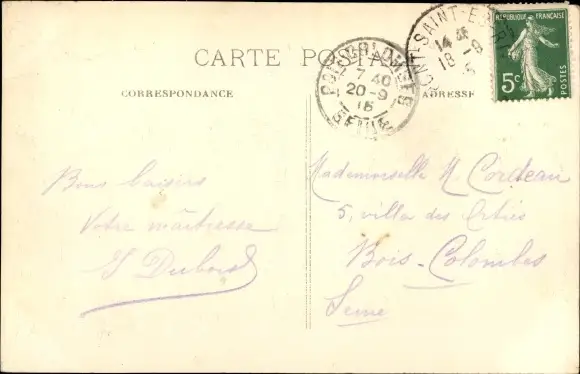 CARTE POSTALE
CORRESPONDANCE
ADRESSE
RÉPUBLIQUE FRANÇAISE
5c
POSTES
7 40
20-9
15
SEINE
14
18-9
15
Bons baisers
Votre maîtresse
J Dubois
Mademoiselle M. Cordeau
5, villa des Orties
Bois-Colombes
Seine